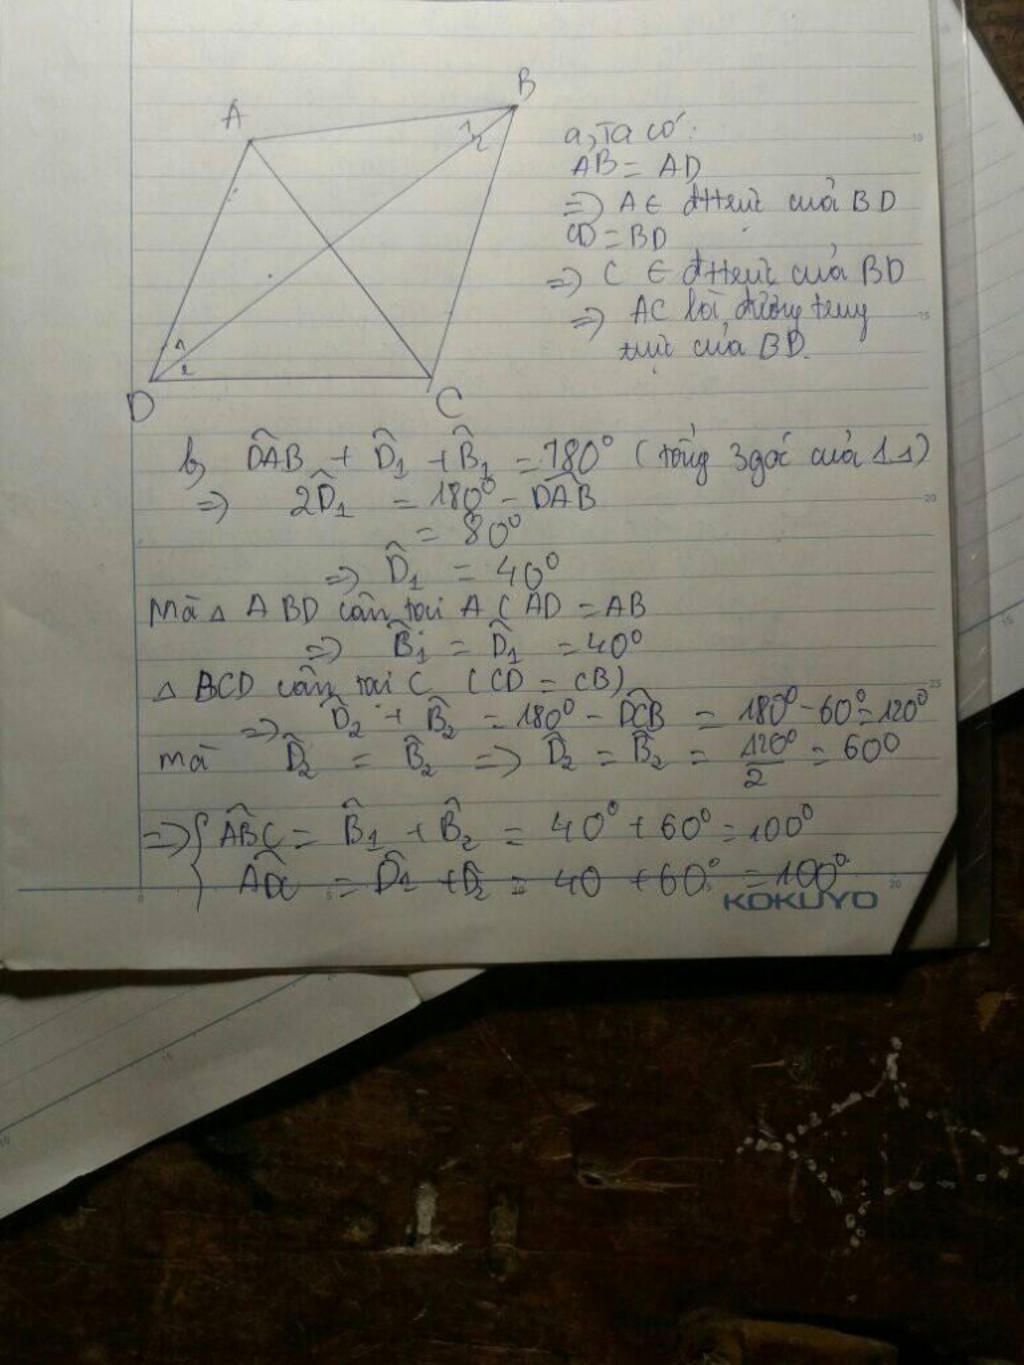 A
B
1
2
1
2
D
C
a, Ta có:
AB = AD
=> A ∈ đttrực của BD
CD = BD
=> C ∈ đttrực của BD
=> AC là đường trung
trực của BD.
b, D̂AB + D̂₁ + B̂₁ = 180° (tổng 3 góc của 1 Δ)
=> 2D̂₁ = 180° - D̂AB
= 80°
=> D̂₁ = 40°
Mà Δ ABD cân tại A ( AD = AB
=> B̂₁ = D̂₁ = 40°
Δ BCD cân tại C (CD = CB)
=> D̂₂ + B̂₂ = 180° - D̂CB = 180° - 60° = 120°
mà D̂₂ = B̂₂ => D̂₂ = B̂₂ = 120°/2 = 60°
=> { ÂBC = B̂₁ + B̂₂ = 40° + 60° = 100°
ÂDC = D̂₁ + D̂₂ = 40 + 60° = 100°
KOKUYO